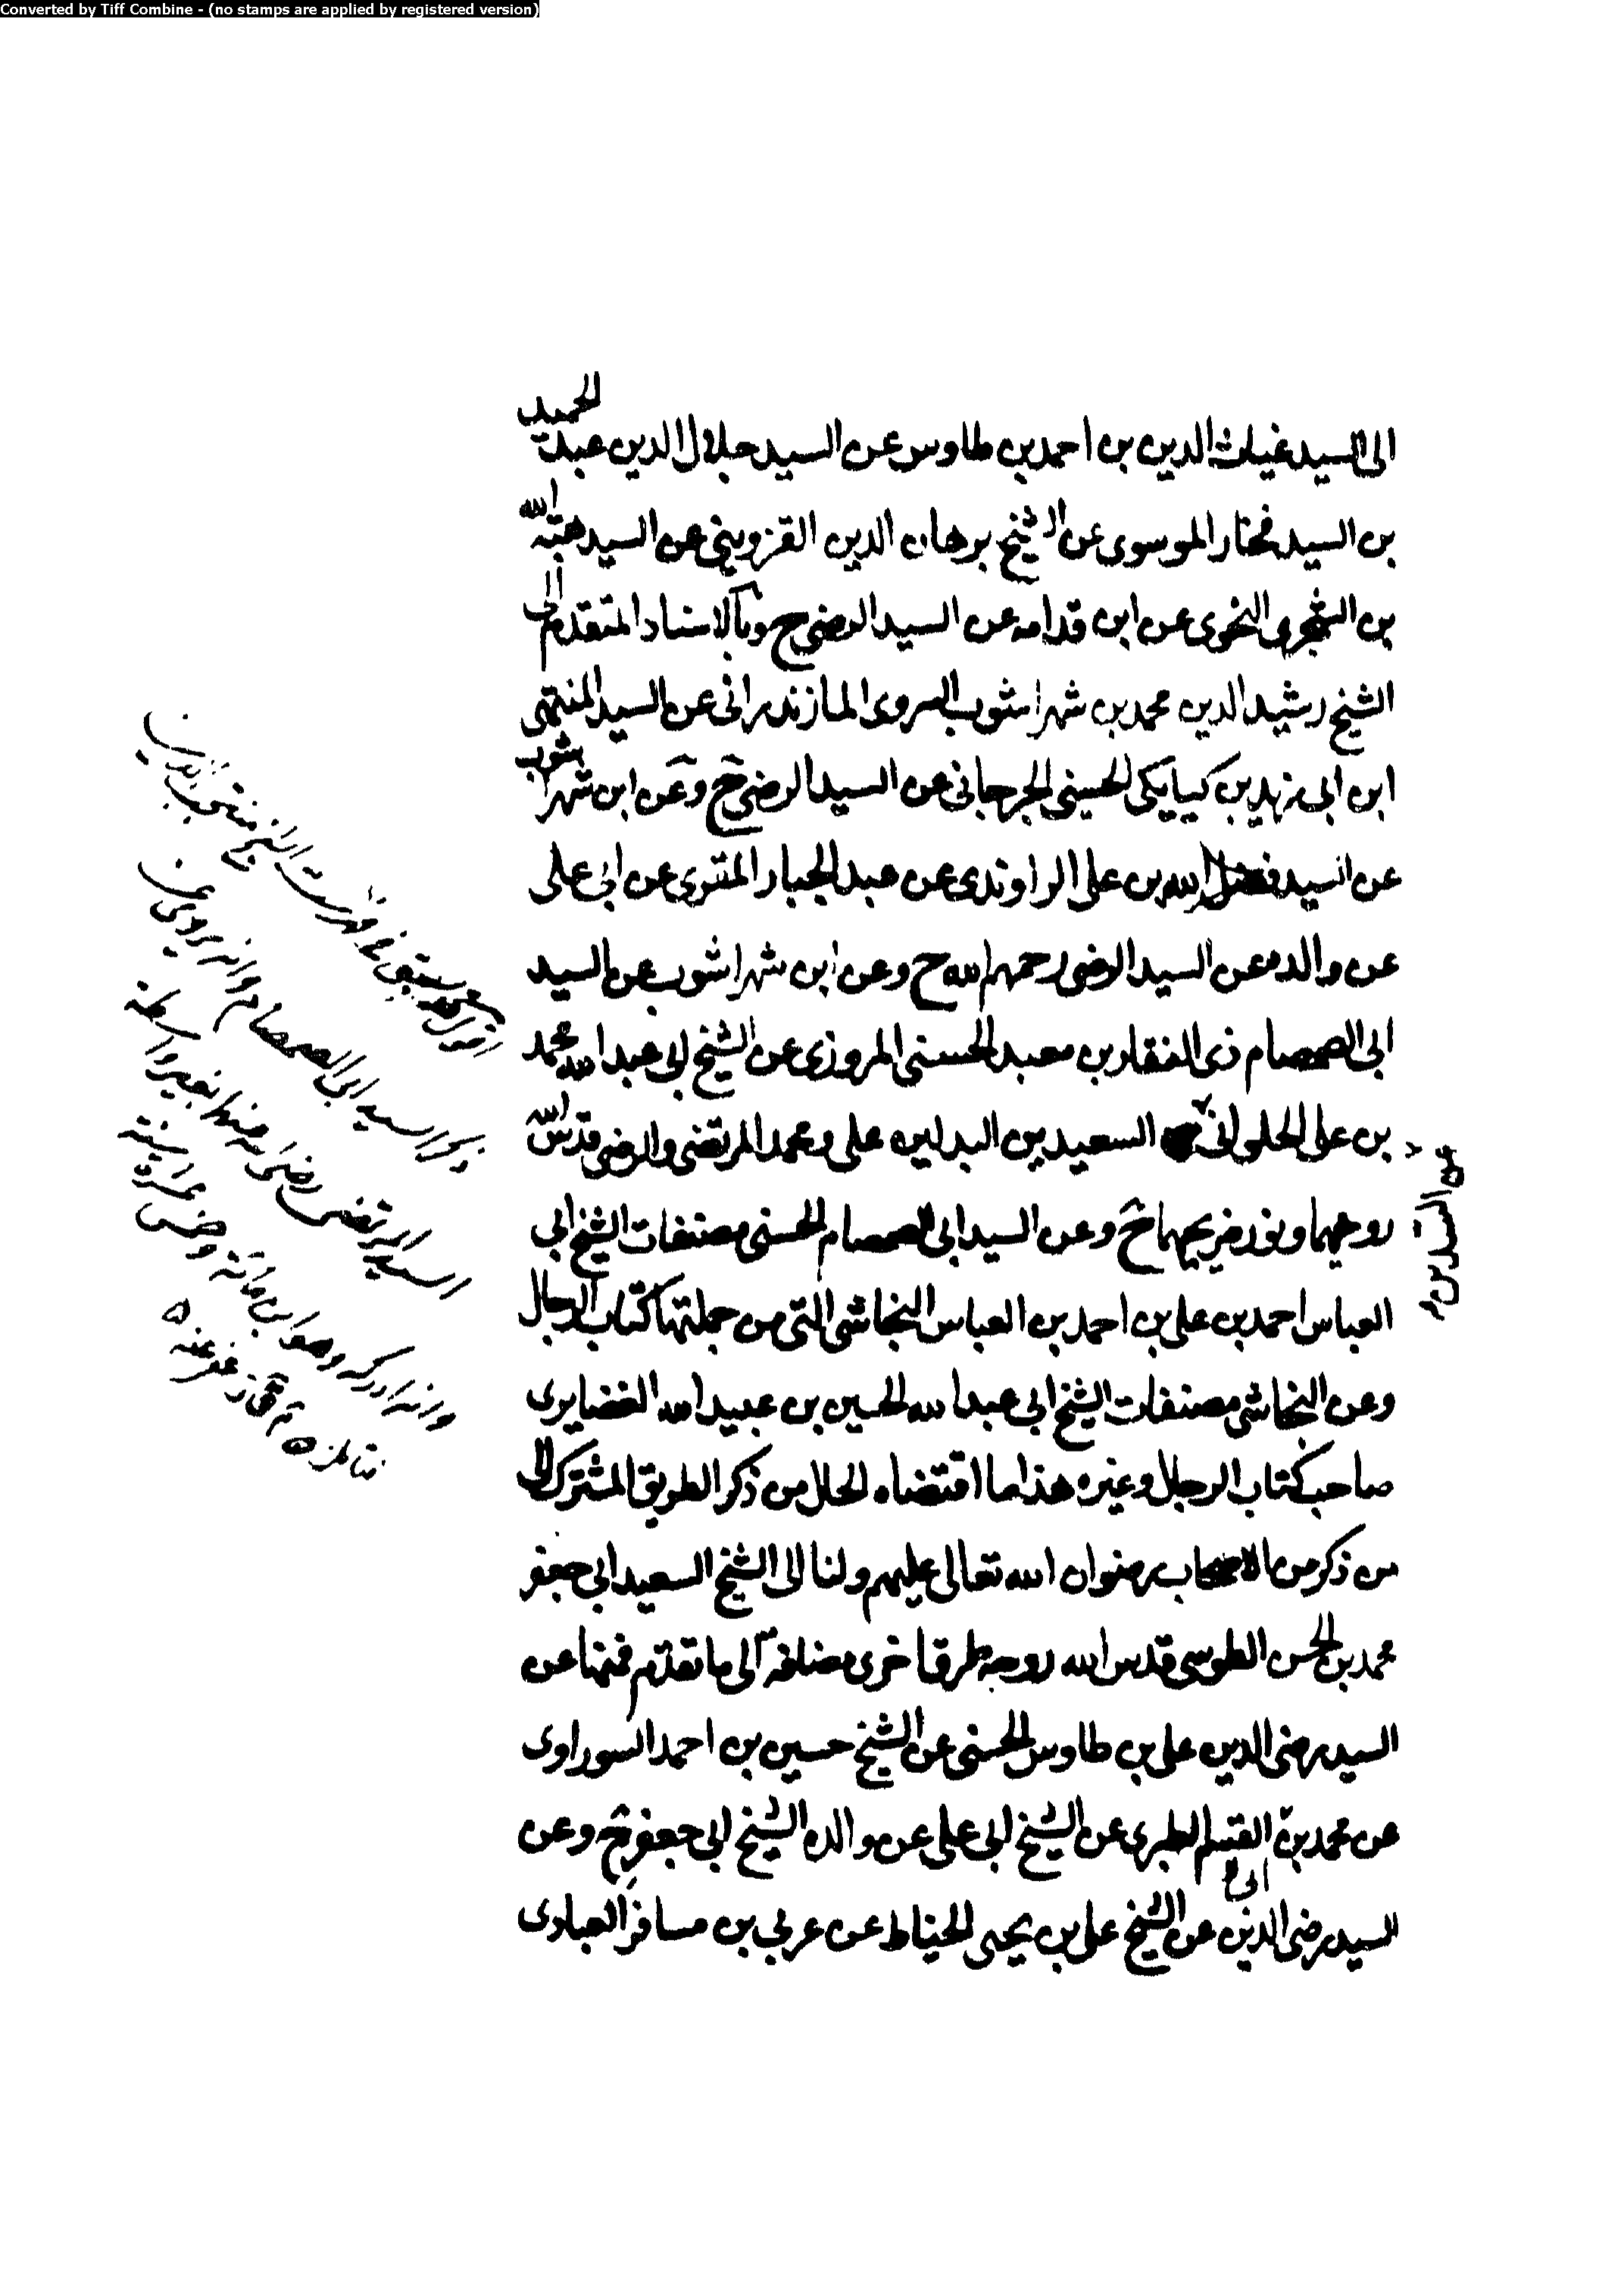 Converted by Tiff Combine - (no stamps are applied by registered version)
الى السيد غياث الدين بن احمد بن طاوس عن السيد جلال الدين عبد الحميد
بن السيد فخار الموسوى عن الشيخ برهان الدين القزوينى عن السيد هبة الله
بن الشجرى النحوى عن ابن قدامه عن السيد الرضى ح وبالاسناد المتقدم الى
الشيخ رشيد الدين محمد بن شهراشوب السروى المازندرانى عن السيد المنتهى
ابن ابى زيد بن كيابكى الحسينى الجرجانى عن السيد الرضى ح وعن ابن شهراشوب
عن السيد فضل الله بن على الراوندى عن عبد الجبار المقرى عن ابى على
عن والده عن السيد الرضى رحمهم الله ح وعن ابن شهراشوب عن السيد
ابى الصمصام ذى الفقار بن معبد الحسنى المروزى عن الشيخ ابى عبد الله محمد
بن على الحلوانى عن السيدين السعيدين البدلين على ومحمد المرتضى والرضى قدس الله
روحيهما ونور ضريحيهما ح وعن السيد ابى الصمصام الحسنى مصنفات الشيخ ابى
العباس احمد بن على بن احمد بن العباس النجاشى التى من جملتها كتاب الرجال
وعن النجاشى مصنفات الشيخ ابى عبد الله الحسين بن عبيد الله الغضايرى
صاحب كتاب الرجال وغيره هذا ما اقتضاه الحال من ذكر الطريق المشترك الى
من ذكر من الاصحاب رضوان الله تعالى عليهم ولنا الى الشيخ السعيد ابى جعفر
محمد بن الحسن الطوسى قدس الله روحه طرقا اخرى مضافة الى ما تقدم فمنها عن
السيد رضى الدين على بن طاوس الحسنى عن الشيخ حسين بن احمد السوراوى
عن محمد بن ابى القسم الطبرى عن الشيخ ابى على عن والده الشيخ ابى جعفر ح وعن
السيد رضى الدين عن الشيخ على بن يحيى الحناط عن عربى بن مسافر العبادى
السيد ابى الصمصام وانه
السيد المرتضى
وانه ادركه وهو ابن مائة وخمس